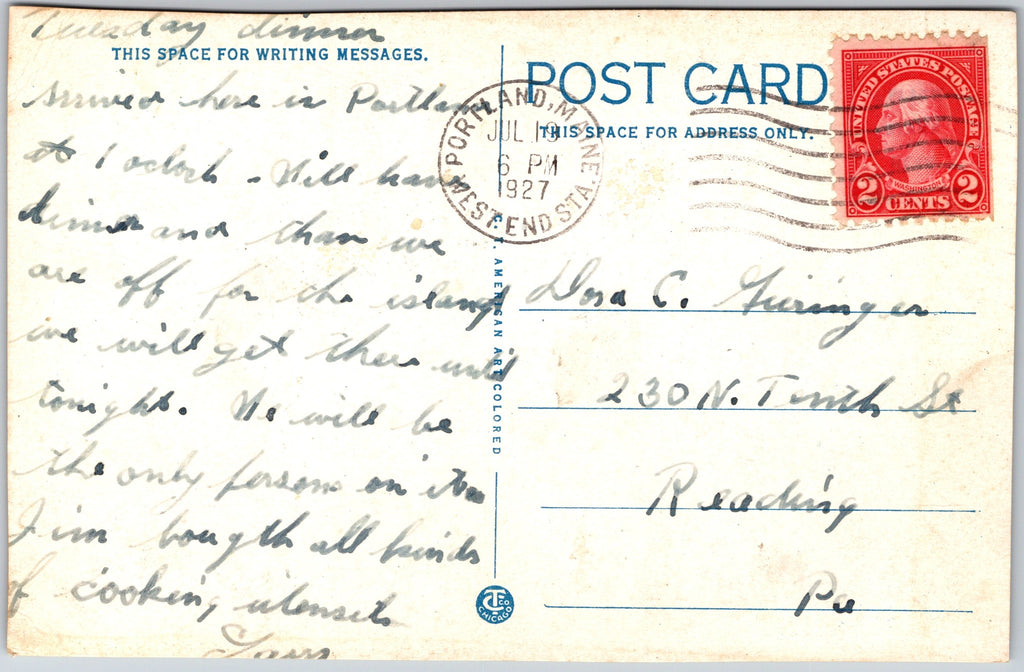 Tuesday dinner
THIS SPACE FOR WRITING MESSAGES.
Arrived here in Portland
at 1 oclock - Will have
dinner and than we
are off for the island
we will get there until
tonight. We will be
the only persons on it
Jim bougth all kinds
of cooking utensels
C. T. AMERICAN ART COLORED
CTCO
CHICAGO
POST CARD
THIS SPACE FOR ADDRESS ONLY.
PORTLAND, MAINE.
JUL 19
6 PM
1927
WEST END STA.
UNITED STATES POSTAGE
WASHINGTON
2 CENTS 2
Dora C. Giringer
230 N. Tenth St
Reading
Pa